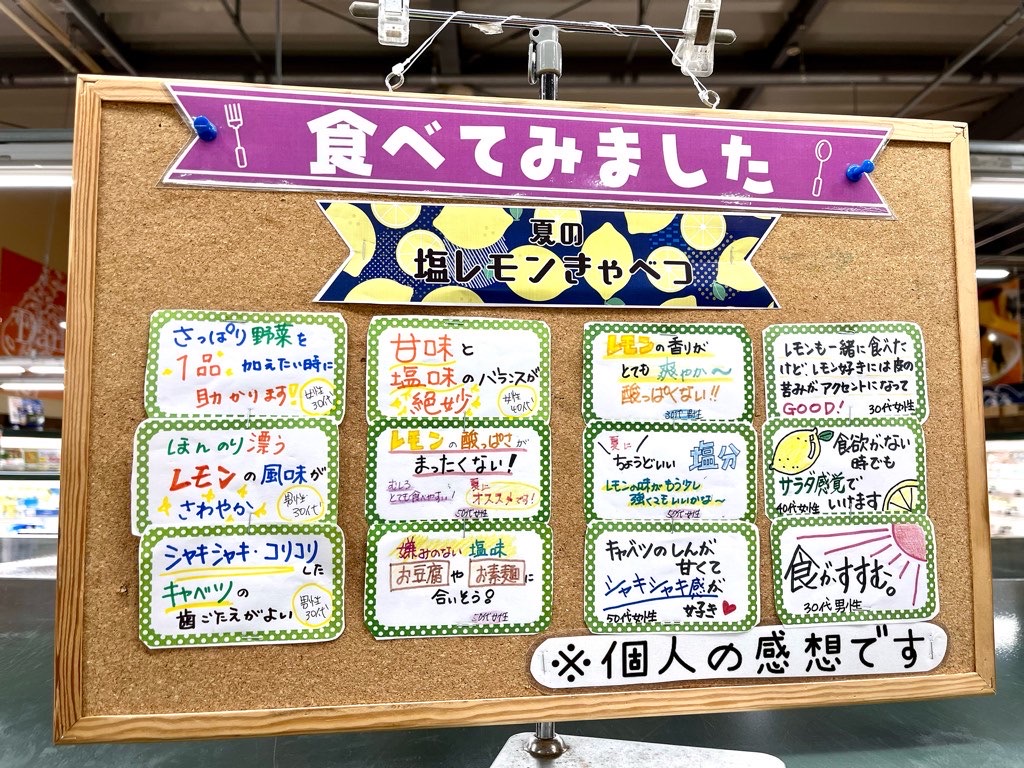 食べてみました
夏の
塩レモンきゃべつ
さっぱり野菜を
1品 加えたい時に
助かります!
女性
30代
ほんのり漂う
レモンの風味が
さわやか
男性
30代
シャキシャキ・コリコリ
した
キャベツの
歯ごたえがよい
男性
30代
甘味と
塩味のバランスが
絶妙
女性
40代
レモンの酸っぱさが
まったくない!
むしろ
とても食べやすい!
夏に
オススメです!
50代女性
嫌みのない 塩味
お豆腐や お素麺に
合いそう♪
50代女性
レモンの香りが
とても 爽やか〜
酸っぱくない!!
30代 男性
夏に
ちょうどいい 塩分
レモンの味がもう少し
強くてもいいかな〜
50代女性
キャベツのしんが
甘くて
シャキシャキ感が
好き♥
50代女性
レモンも一緒に食べた
けど、レモン好きには皮の
苦みがアクセントになって
GOOD!
30代女性
食欲がない
時でも
サラダ感覚で
いけます
40代女性
食がすすむ。
30代男性
※個人の感想です